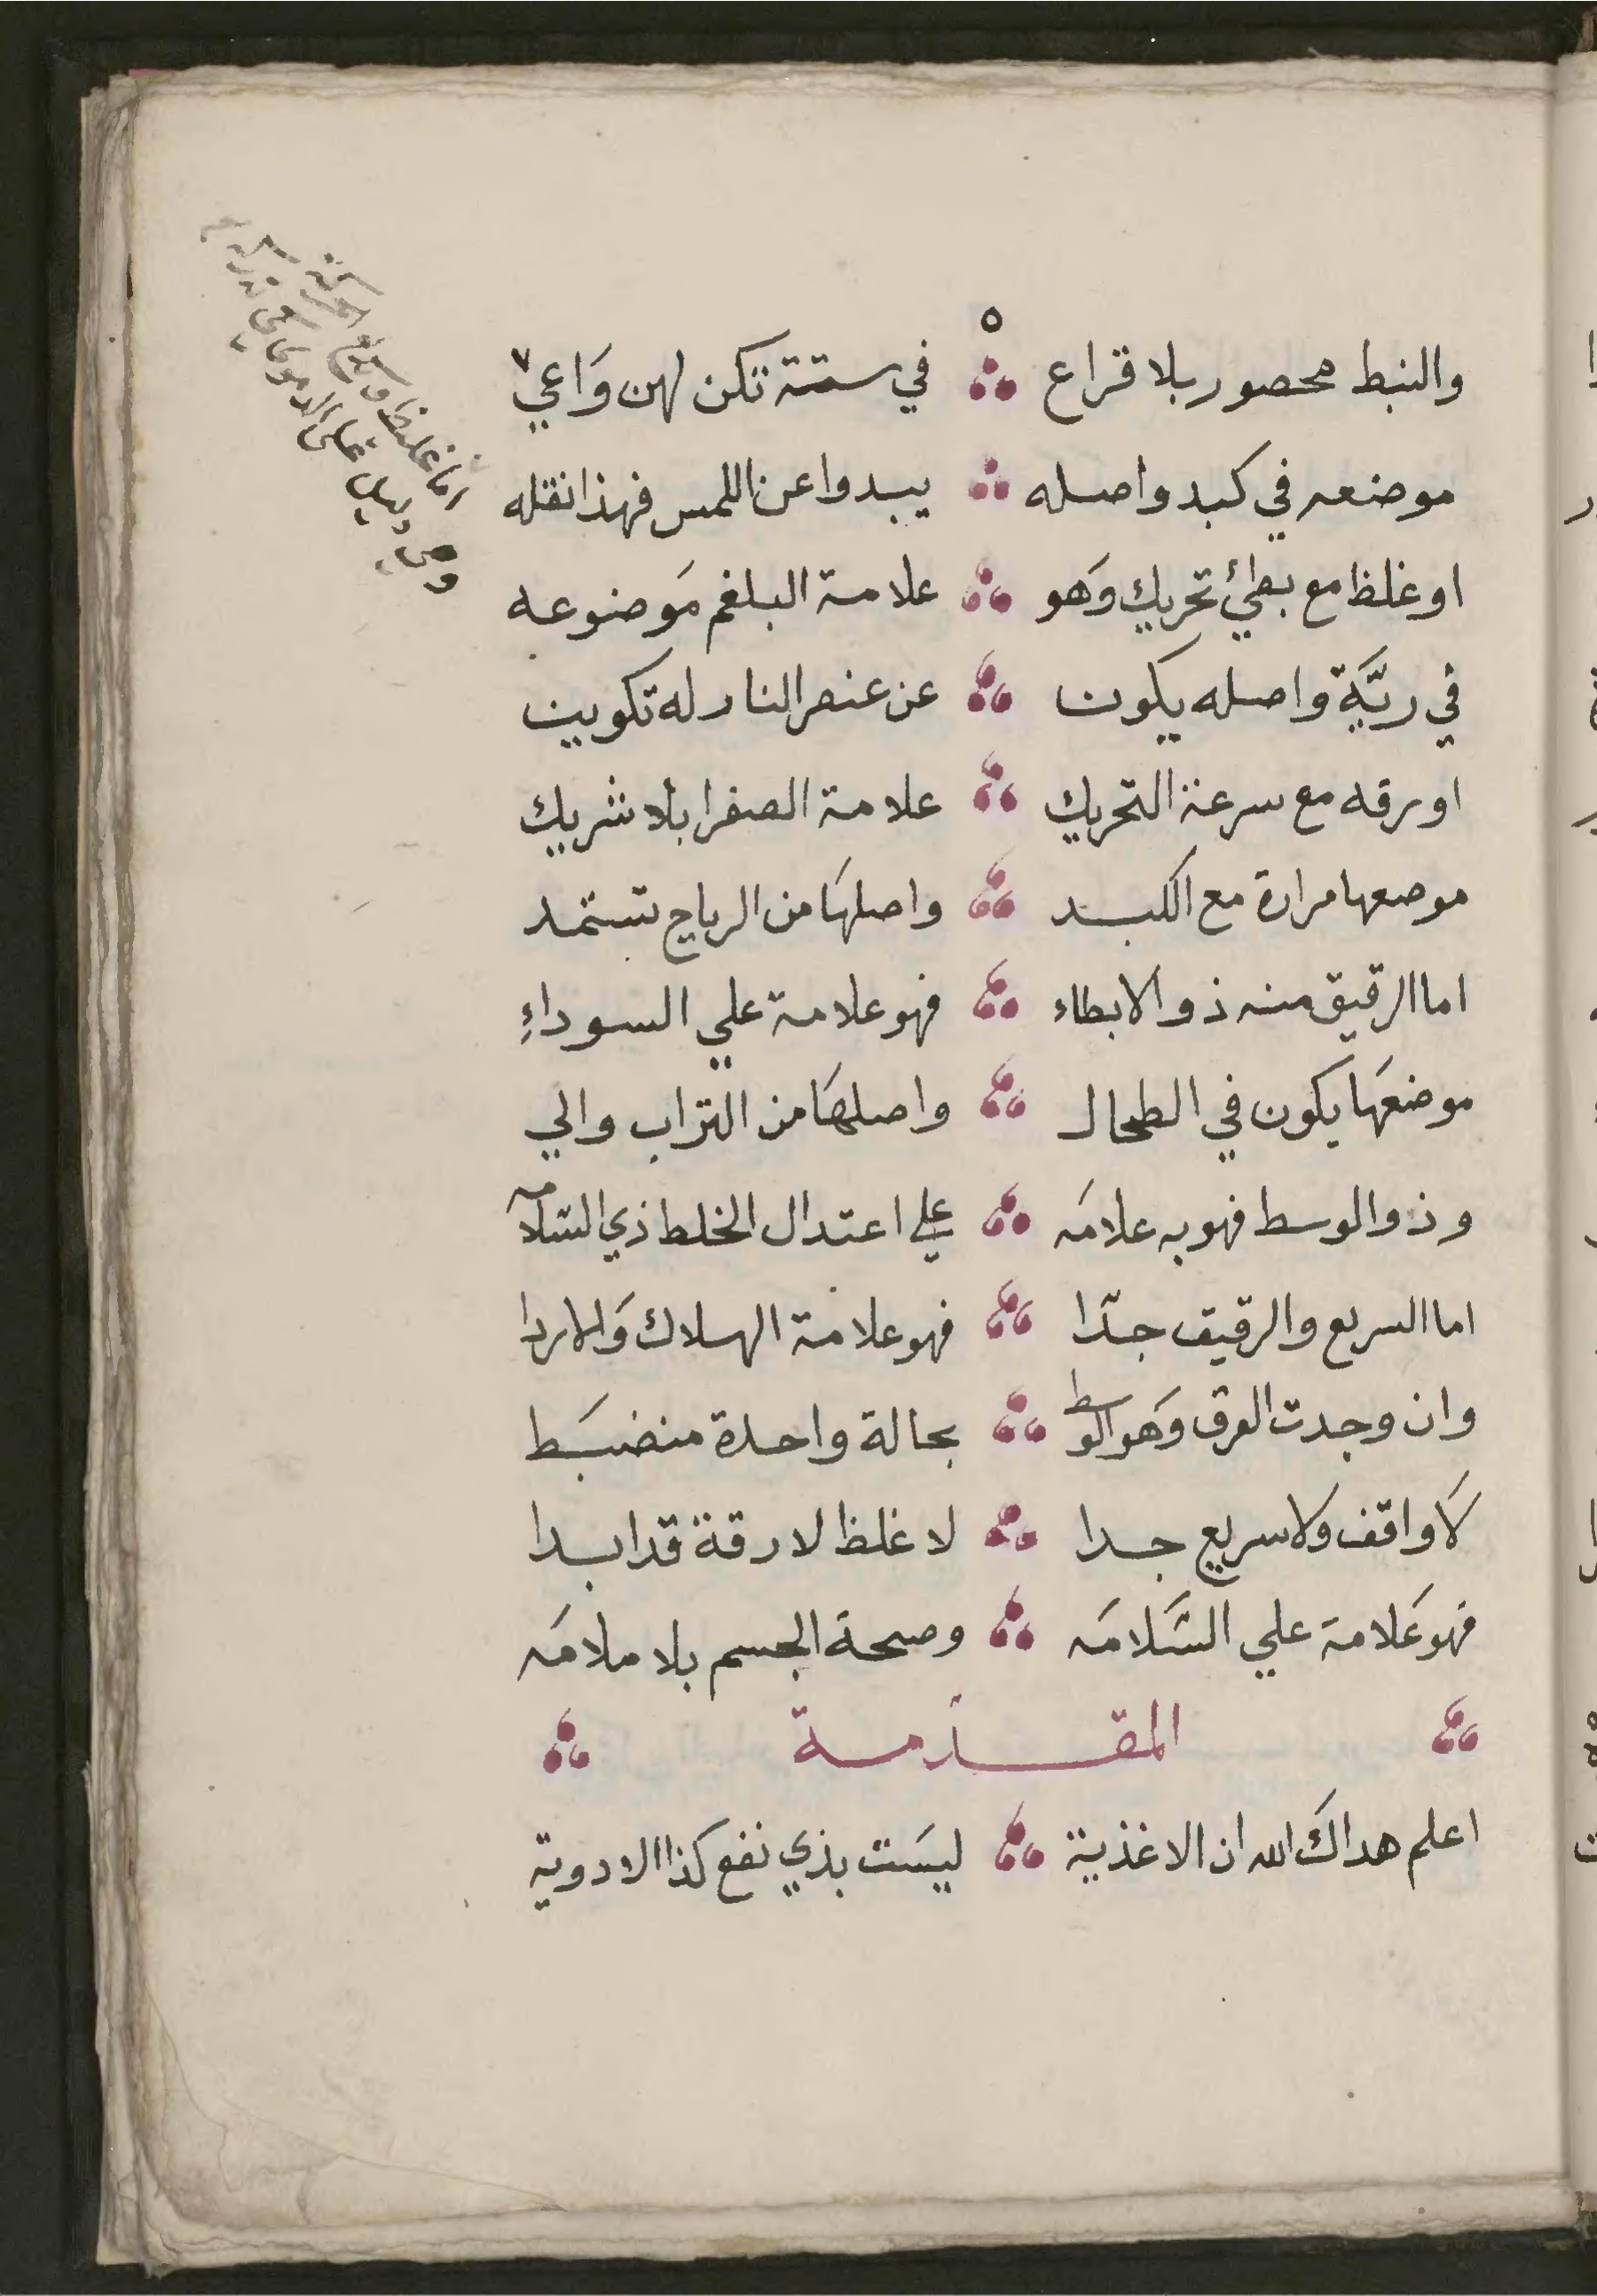 ٥
والنبط محصور بلا قراع في ستة تكن لهن وَاعي
موضعه في كبد واصله يبدوا عن اللمس فهذا نقله
او غلظ مع بطئ تحريك وَهو علامة البلغم مَوضوعه
في ريَّة واصله يكون عن عنصر النار له تكوين
او رقه مع سرعة التحريك علامة الصفرا بلا شريك
موصعها مرارة مع الكبد واصلهَا من الرياح تستمد
اما الرقيق منه ذو الابطاء فهو علامة علي السوداءِ
موضعَها يكون في الطحال واصلهَا من التراب والي
وذو الوسط فهو به علامَه علي اعتدال الخلط ذي السلامه
اما السريع والرقيق جدّا فهو علامة الهلاك وَالاردا
وان وجدت العرق وَهو الوسط بحالة واحدة منضبَط
لَا واقف ولا سريع جدا لا غلظ لا رقة قد ابدا
فهو عَلامة علي السَّلامَه وصحة الجسم بلا ملامَه
المقدّمة
اعلم هداكَ الله ان الاغذية ليسَت بذي نفع كذا الادوية
اما غلظ وسرع
دليل على الدموي